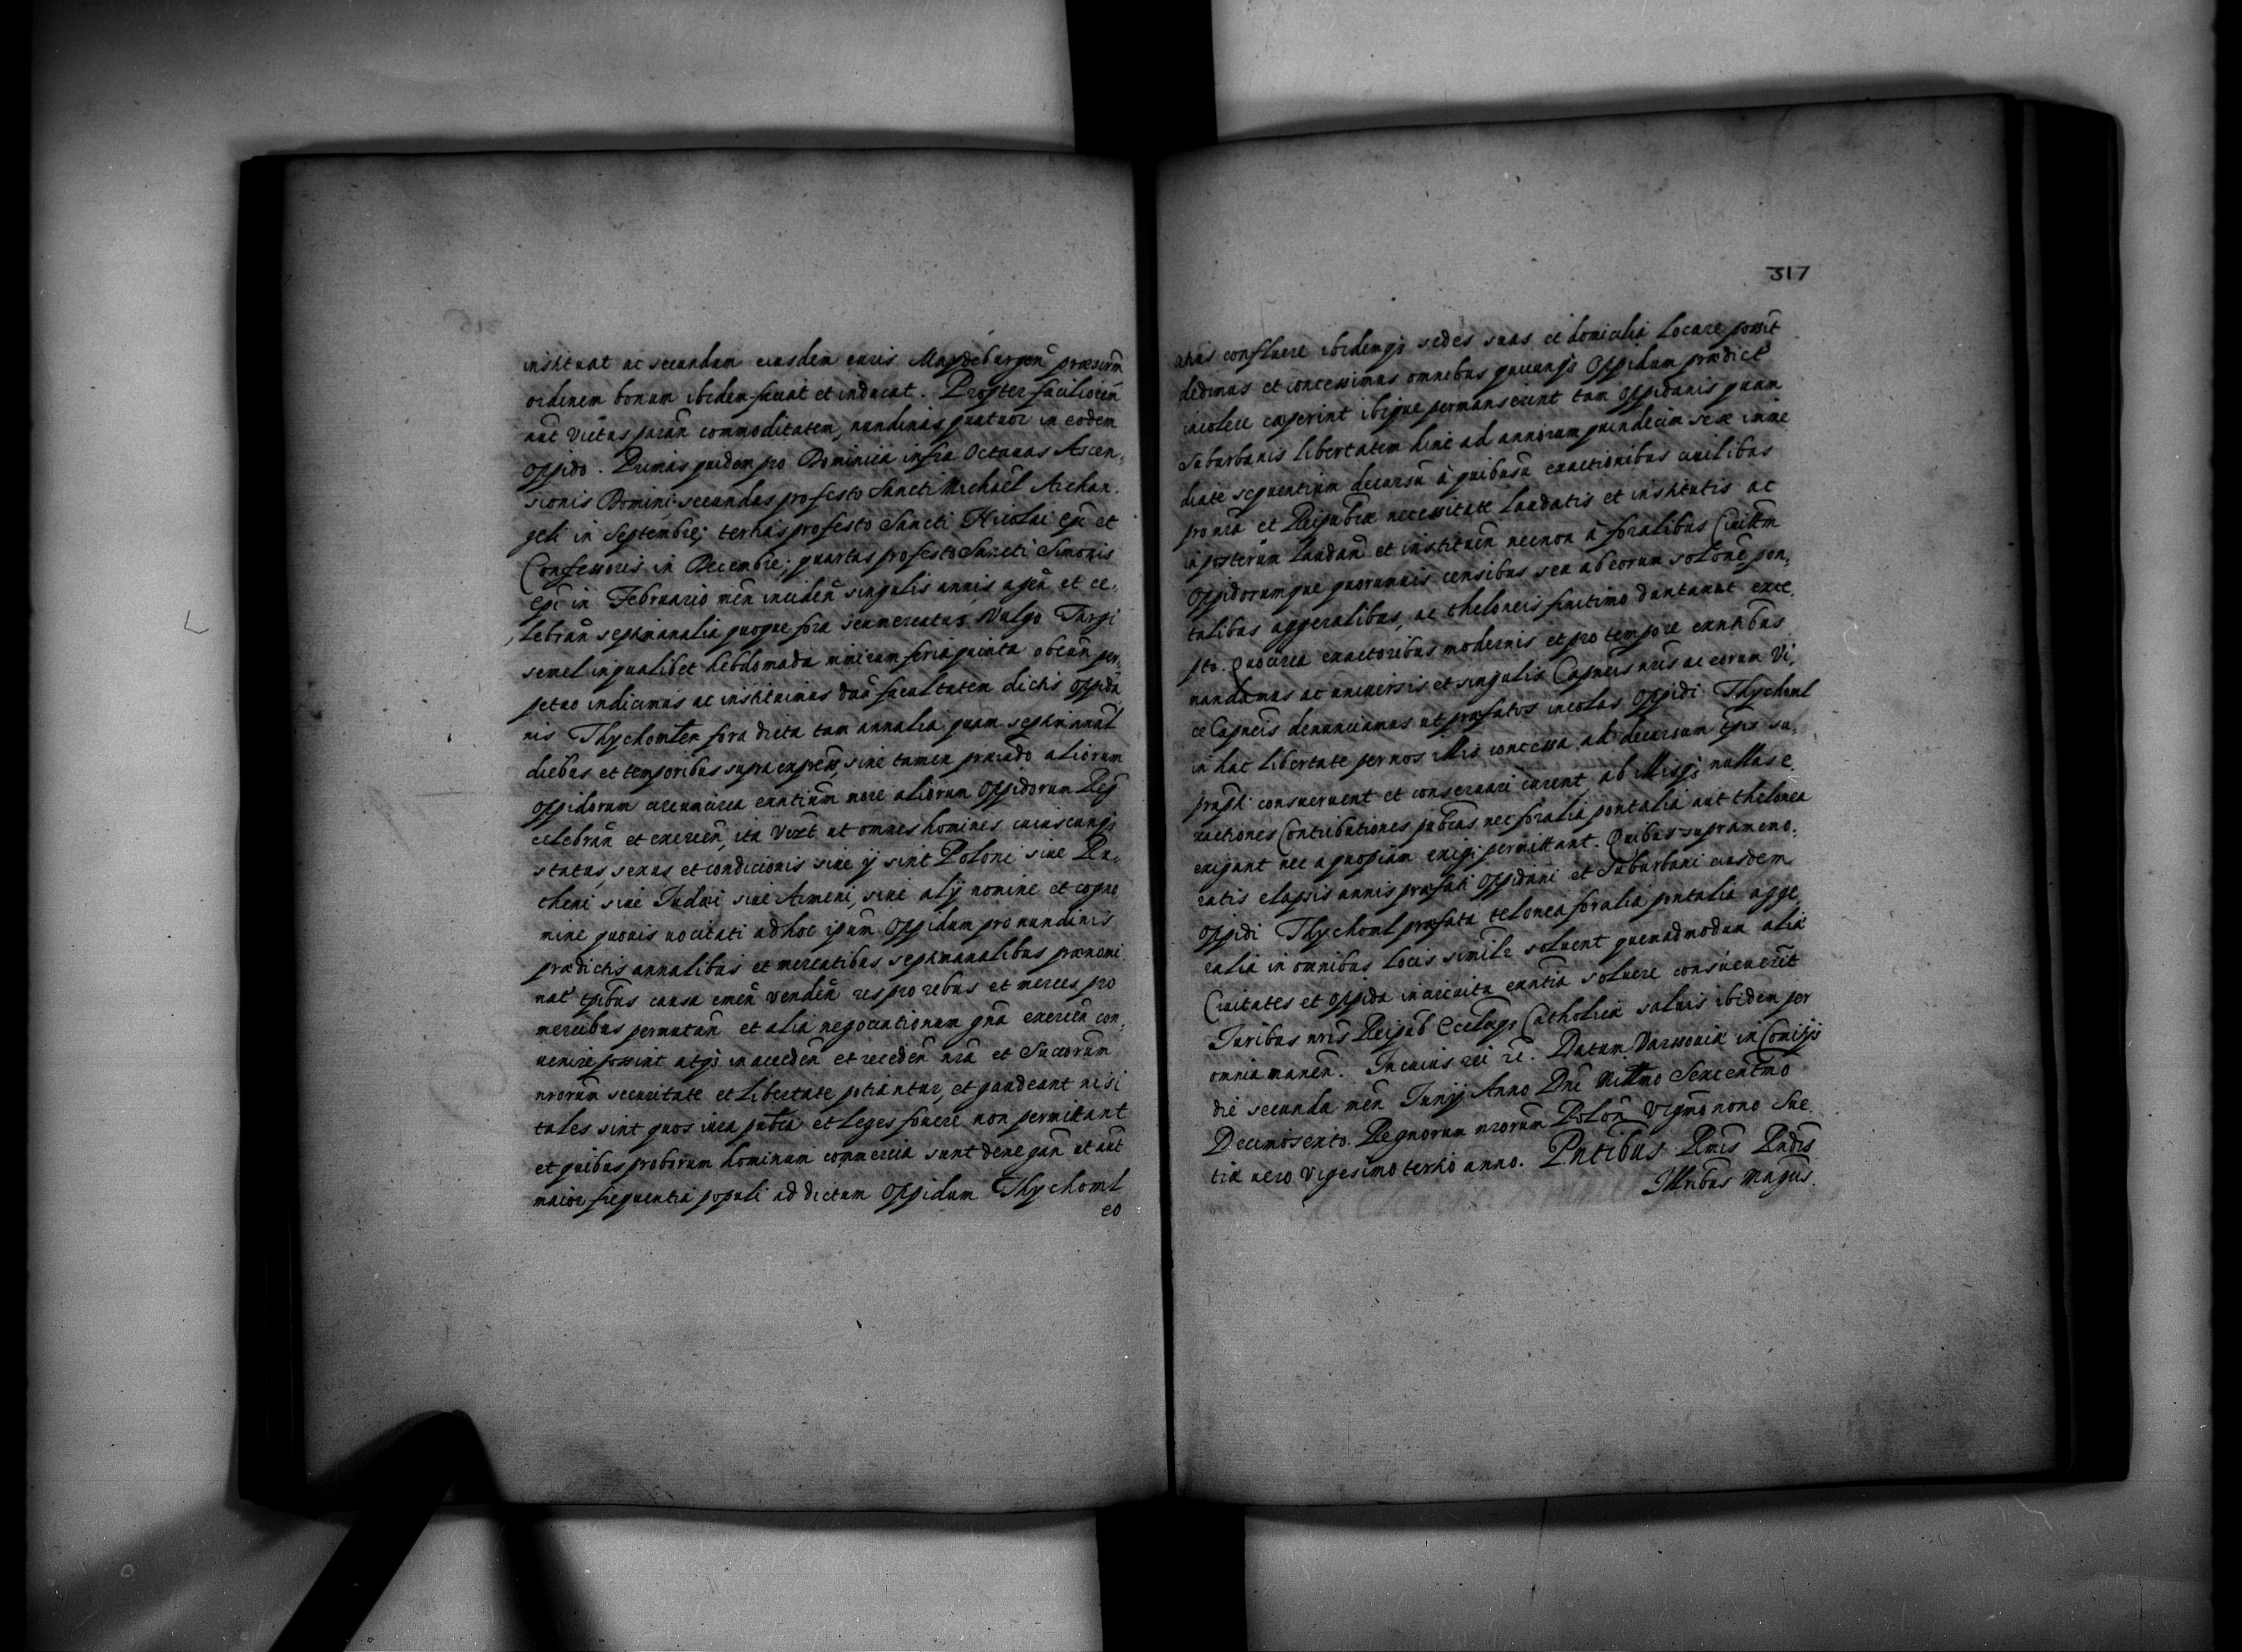 instituat ac secundum eiusdem iuris Maydeburgen̄ præscrm̄
ordinem bonum ibidem faciat et inducat. Propter faciliorem̄
aūt victus paran̄ commoditatem, nundinas quatuor in eodem
oppido. Primas quidem pro Dominica infra Octauas Ascen,
sionis Domini, secundas pro festo Sancti Michaël Archan,
geli in Septembre; tertias pro festo Sancti Nicolai Epī et
Confessoris in Decembre; quartas pro festo Sancti Simonis
Epī in Februario men̄ inciden̄ singulis annis agen̄ et ce,
lebran̄ septimanalia quoque fora seu mercatus, Vulgo Targi
semel in qualibet hebdomada nimirum feria quinta obeun̄ per,
petuo indicimus ac instituimus dan̄ facultatem dictis oppida
nis Thychomlen fora dicta tam annalia quam septimanal
diebus et temporibus supra express̄, sine tamen præiudo aliorum
oppidorum circumcirca exntium̄ more aliorum Oppidorum Reg̃
celebran̄ et exercen̄, ita Vizt ut omnes homines cuiuscunq;
status, sexus et condicionis siue ij sint Poloni siue Ru,
theni siue Iudæi siue Armeni, siue alij nomine et cogno
mine quouis uocitati ad hoc ipsum̄ Oppidum pro nundinis
prædictis annalibus et mercatibus septimanalibus prænomi
nat̄ tpībus causa emen̄ venden̄ res pro rebus et merces pro
mercibus permutan̄ et alia negociationum gn̄a exercen̄ con,
uenire possint atq; in acceden̄ et receden̄ nr̄a et Succorum̄
nrorum̄ securitate et Libertate potiantur, et gaudeant nisi
tales sint quos iura pubca et Leges fouere non permittant
et quibus proborum hominum commercia sunt denegan̄ ut aūt
maior frequentia populi ad dictum oppidum Thychoml
eo
317
dedimus et concessimus omnibus quicunq; Oppidum prædict̄
incolere cæperint ibique permanserint tam oppidanis quam
suburbanis libertatem hinc ad annorum quindecim sese imme
diate sequentium decursu à quibusu exactionibus ciuilibus
pro nr̄a et Reipubcæ necessitate laudatis et institutis ac
in posterum laudan̄ et instituen̄ necnon à foralibus Ciuitm̄
Oppidorumque quorumuis censibus seu ab eorum soloñe pon,
talibus aggeralibus, ac theloneis finitimo duntaxat exce,
pto. Quocirca exactoribus modernis et pro tempore exntibus
mandamus ac uniuersis et singulis Capneis nris ac eorum Vi,
ce Capneis denunciamus ut præfatos incolas Oppidi Thychoml
in hac libertate per nos illis concessa ad decursum tpis su,
prapti conseruent et conseruari curent, ab illisq; nullas e
xactiones Contributiones pubcas nec foralia pontalia aut thelonea
exigant nec a quopiam exigi permittant. Quibus supramemo,
ratis elapsis annis præfati oppidani et Suburbani eiusdem
Oppidi Thychoml præfata telonea foralia pontalia agge,
ralia in omnibus locis similr soluent quemadmodum alia
Ciuitates et oppida in uicinia exntia soluere consueuerūt
Iuribus nris Reipub Ecclaeq; Catholicæ saluis ibidem per
omnia manen̄. In cuius rei rē. Datum Varsouiæ in Comitijs
die secunda men̄ Iunij Anno Dni Millmo Sexcentmo
Decimosexto. Regnorum nrorum̄ Polon̄ Vigmo nono Sue,
tiæ uero vigesimo tertio anno. Pntibus Rmis Rndis
Illribus Magcis.